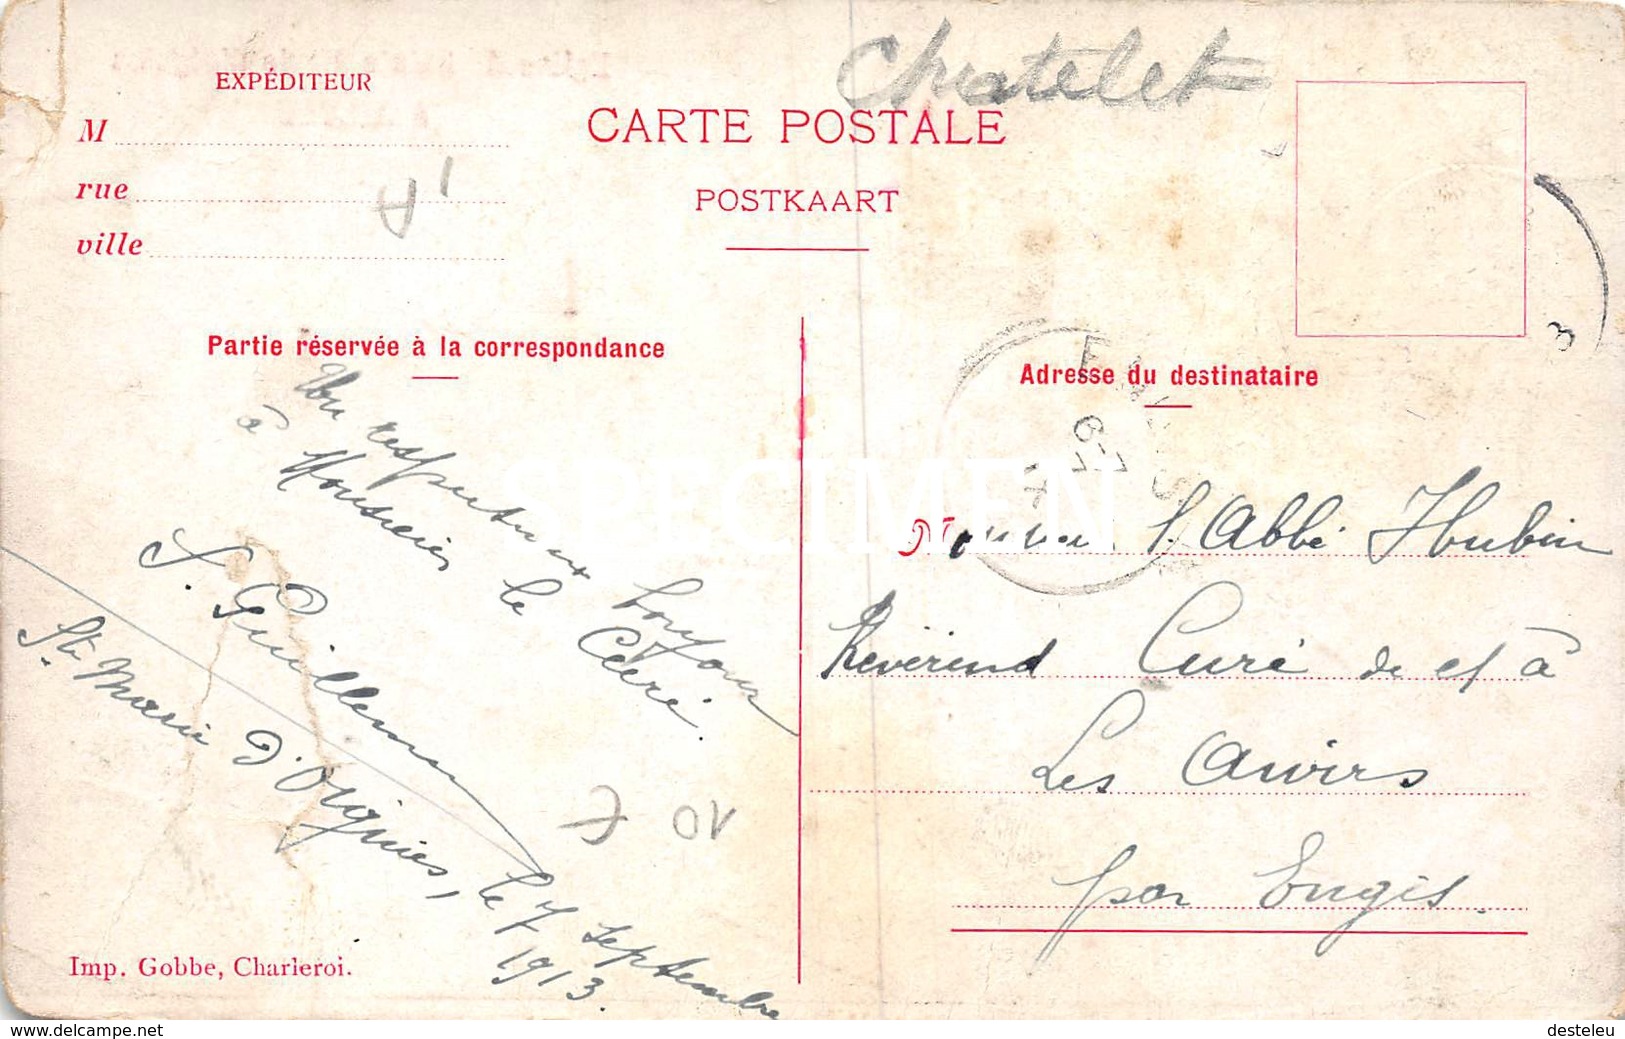 Chatelet
EXPÉDITEUR
M
rue
ville
CARTE POSTALE
POSTKAART
Partie réservée à la correspondance
Un respectueux bonjour
à Monsieur le Curé.
S. Guillemin
Ste Marie d'Oignies, le 7 septembre
1913.
Imp. Gobbe, Charleroi.
Adresse du destinataire
Monsieur l'Abbé Hubin
Révérend Curé de et à
Les Awirs
par Engis.
SPECIMEN
www.delcampe.net
desteleu